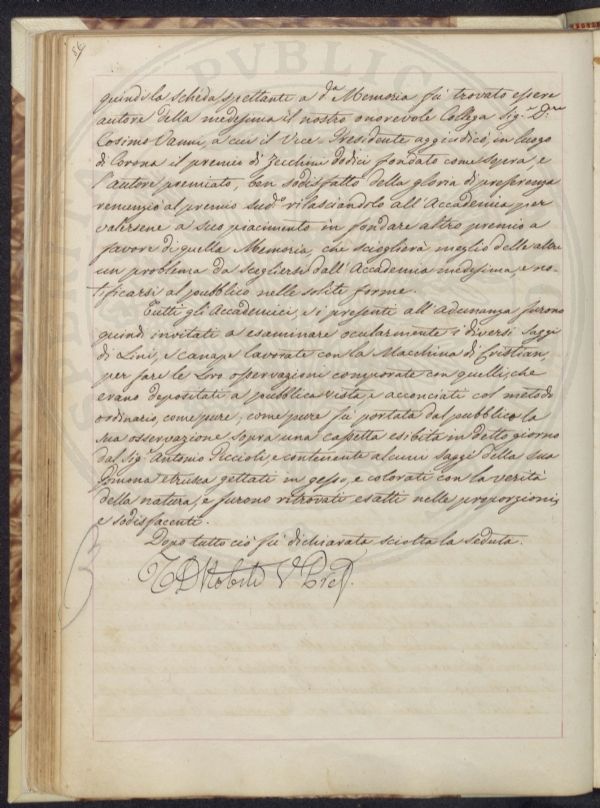 56
quindi la scheda spettante a d.ª Memoria fù trovato essere
autore della medesima il nostro onorevole Collega Sig.ʳ D.ʳᵉ
Cosimo Vanni, a cui il Vice Presidente aggiudicò, in luogo
di Corona il premio di Zecchini dodici fondato come sopra, e
l'autore premiato, ben sodisfatto della gloria di preferenza
renunziò al premio sud.º rilasciandolo all'Accademia per
valersene a suo piacimento in fondare altro premio a
favore di quella Memoria, che scioglierà meglio delle altre
un problema da scegliersi dall'Accademia medesima, e no-
tificarsi al pubblico nelle solite forme.
Tutti gli Accademici, e i presenti all'Adunanza furono
quindi invitati a esaminare ocularmente i diversi saggi
di Lini, e Canape lavorate con la Macchina di Cristian,
per fare le loro osservazioni comparate con quelli, che
erano depositati a pubblica vista, e acconciati col metodo
ordinario, come pure, come pure fù portata dal pubblico la
sua osservazione sopra una cassetta esibita in detto giorno
dal Sig.ʳ Antonio Piccioli, e contenente alcuni saggi della sua
Pomona etrusca gettati in gesso, e colorati con la verità
della natura, e furono ritrovati esatti nelle proporzioni,
e sodisfacenti.
Dopo tutto ciò fù dichiarata sciolta la seduta.